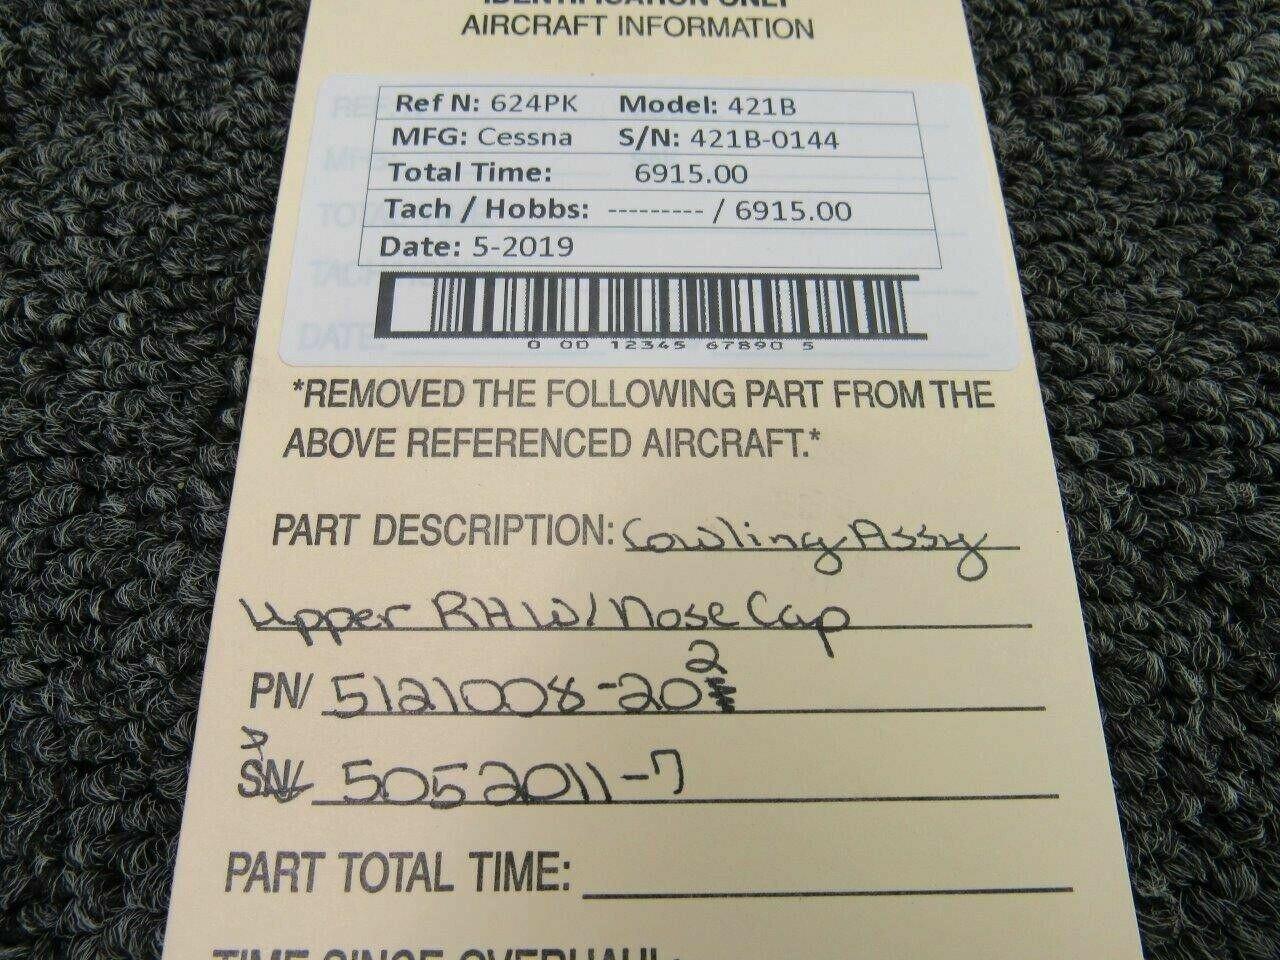 IDENTIFICATION ONLY
AIRCRAFT INFORMATION
Ref N: 624PK Model: 421B
MFG: Cessna S/N: 421B-0144
Total Time: 6915.00
Tach / Hobbs: --------- / 6915.00
Date: 5-2019
0 00 12345 67890 5
*REMOVED THE FOLLOWING PART FROM THE
ABOVE REFERENCED AIRCRAFT.*
PART DESCRIPTION: Cowling Assy
Upper RH W/ Nose Cap
PN/ 5121008-202
P
SN/ 5052011-7
PART TOTAL TIME:
TIME SINCE OVERHAUL: